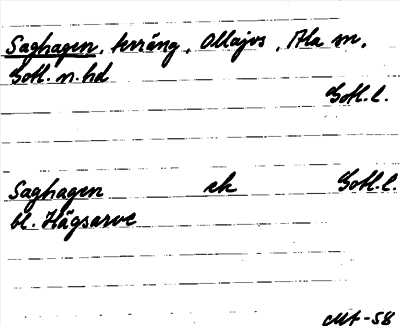 Saghagen, terräng, Ollajvs, Ala sn,
Gotl. n. hd
Gotl. l.
Saghagen ek Gotl. l.
bl. Hägsarve
MA-58